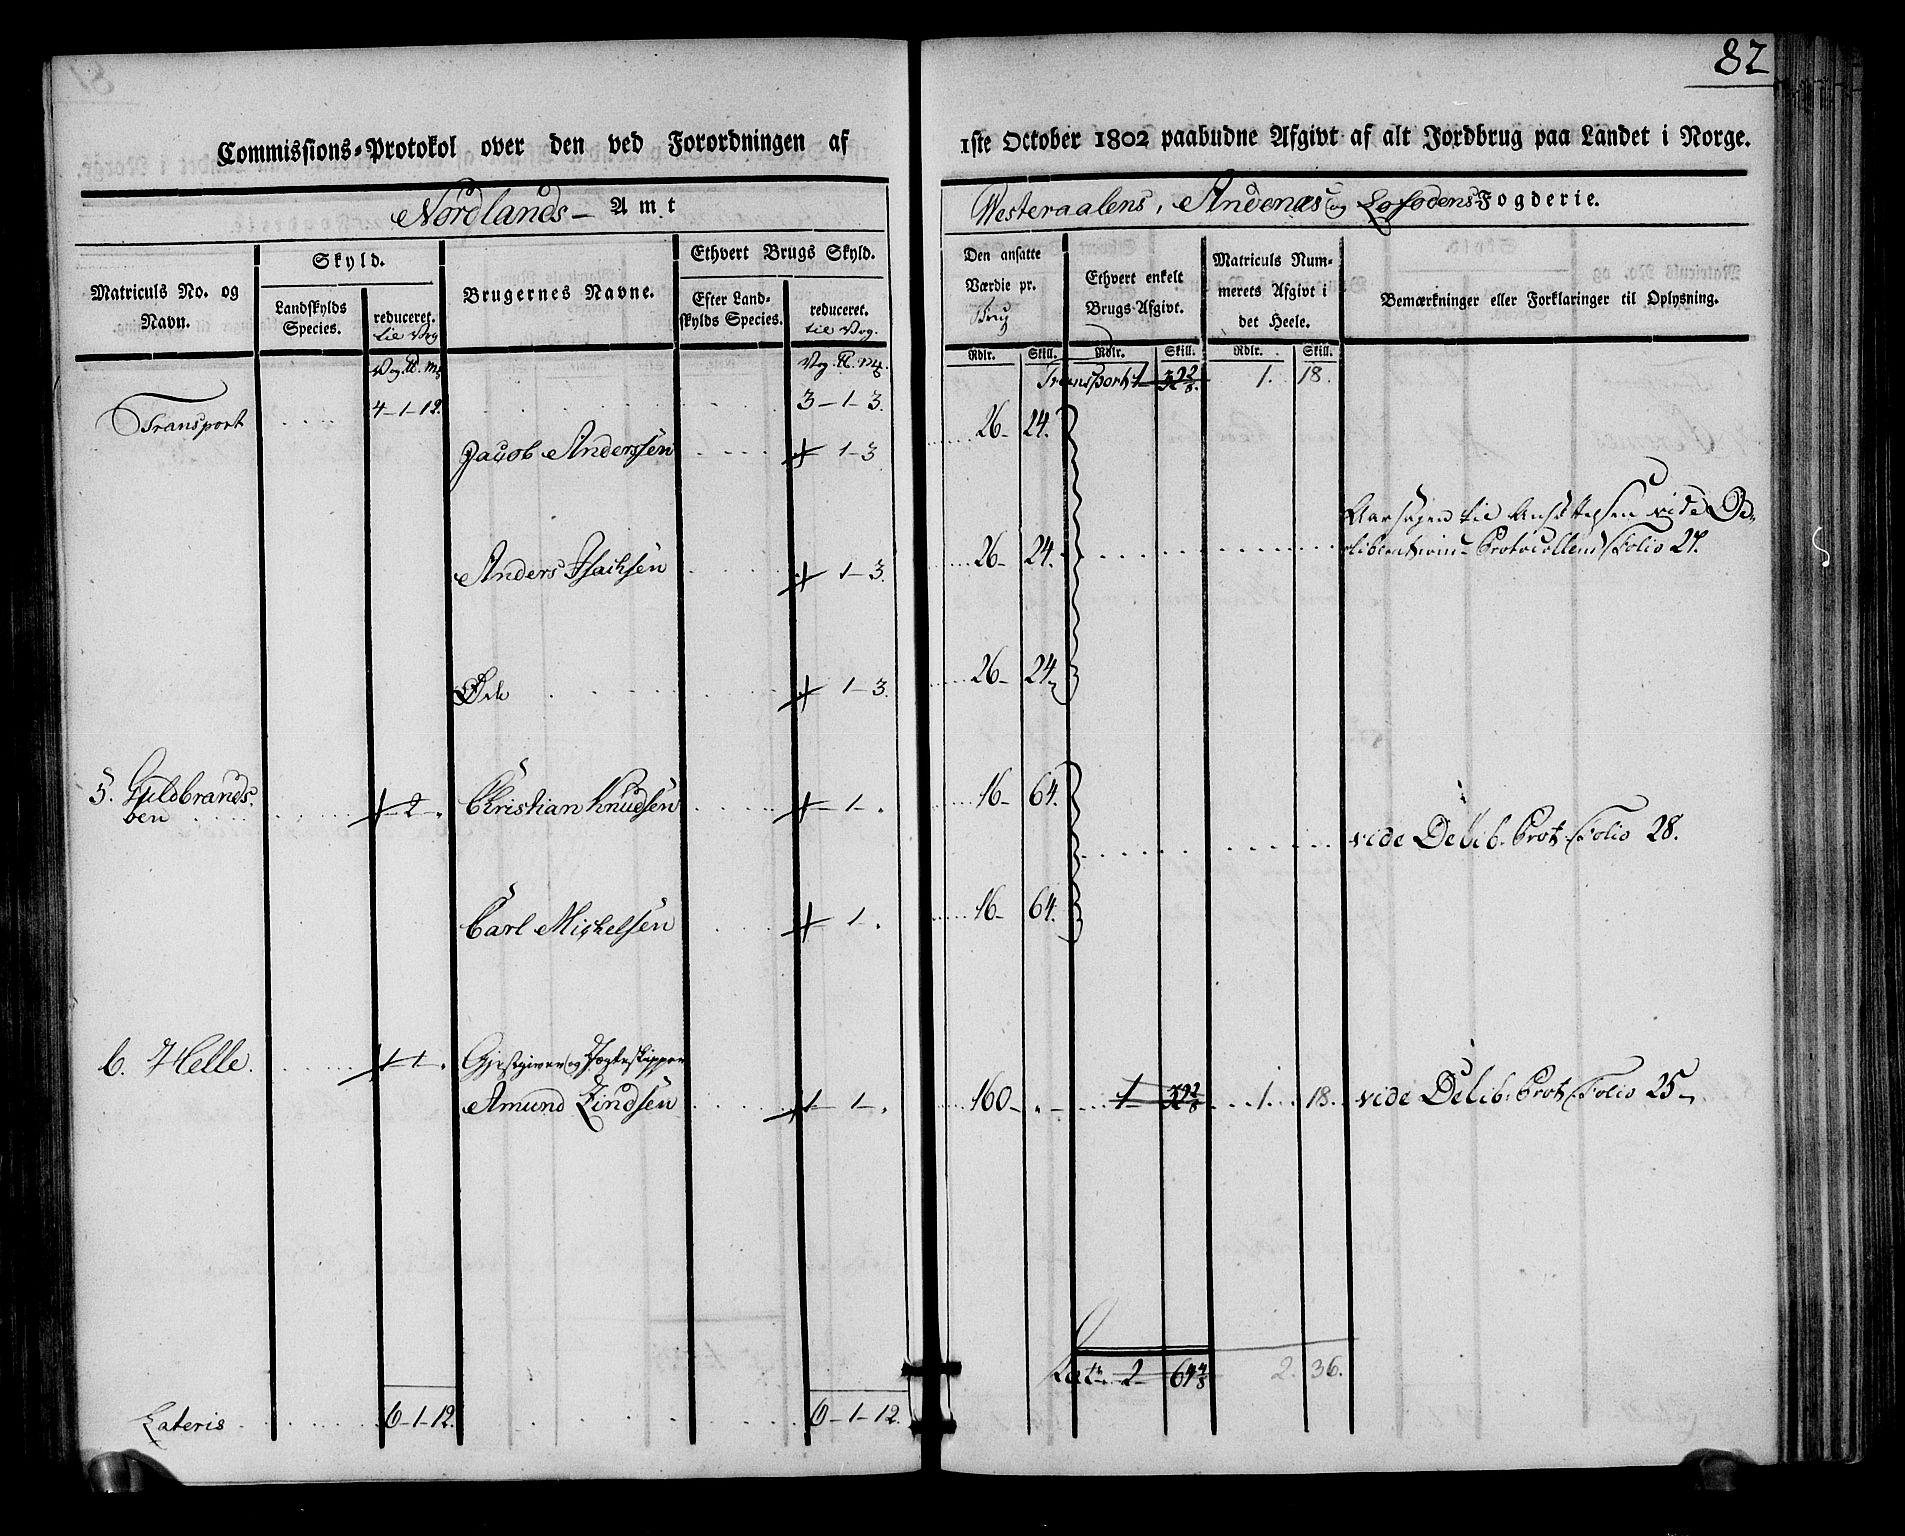 82
Commissions-Protokol over den ved Forordningen af 1ste October 1802 paabudne Afgivt af alt Jordbrug paa Landet i Norge.
Nordlands Amt
Westeraalens, Andenæs og Lofodens Fogderie.
Matriculs No. og Navn.
Skyld.
Landskylds Species.
reduceret. til Vog
Brugernes Navne.
Ethvert Brugs Skyld.
Efter Landskylds Species.
reduceret. til Vog.
Den ansatte Værdie pr.
Ethvert enkelt Brugs-Afgivt.
Matriculs Nummerets Afgivt i det Heele.
Bemærkninger eller Forklaringer til Oplysning.
Rdlr. Skill. Rdlr. Skill. Rdlr. Skill.
Transport 4-1-12. 3-1-3. Transport 1 1. 18.
Jacob Anderssen 1-3 26- 24.
Anders Isachsen 1-3. 26- 24. Aarsagen til Ansættelsen vide De-
liberations Protocollens Folio 27.
Øde 1-3. 26- 24.
5. Guldbrands-
ben 2 Christian Knudsen 1 16- 64.
vide Delib. Prot. Folio 28.
Carl Michelsen 1 16- 64.
6. Helle 1-1 Gjestgiver og Jægteskipper
Amund Lindsen 1-1 160 1 1. 18. vide Delib. Prot. Folio 25
Lat. 2 2. 36.
Lateris 6-1-12. 6-1-12.